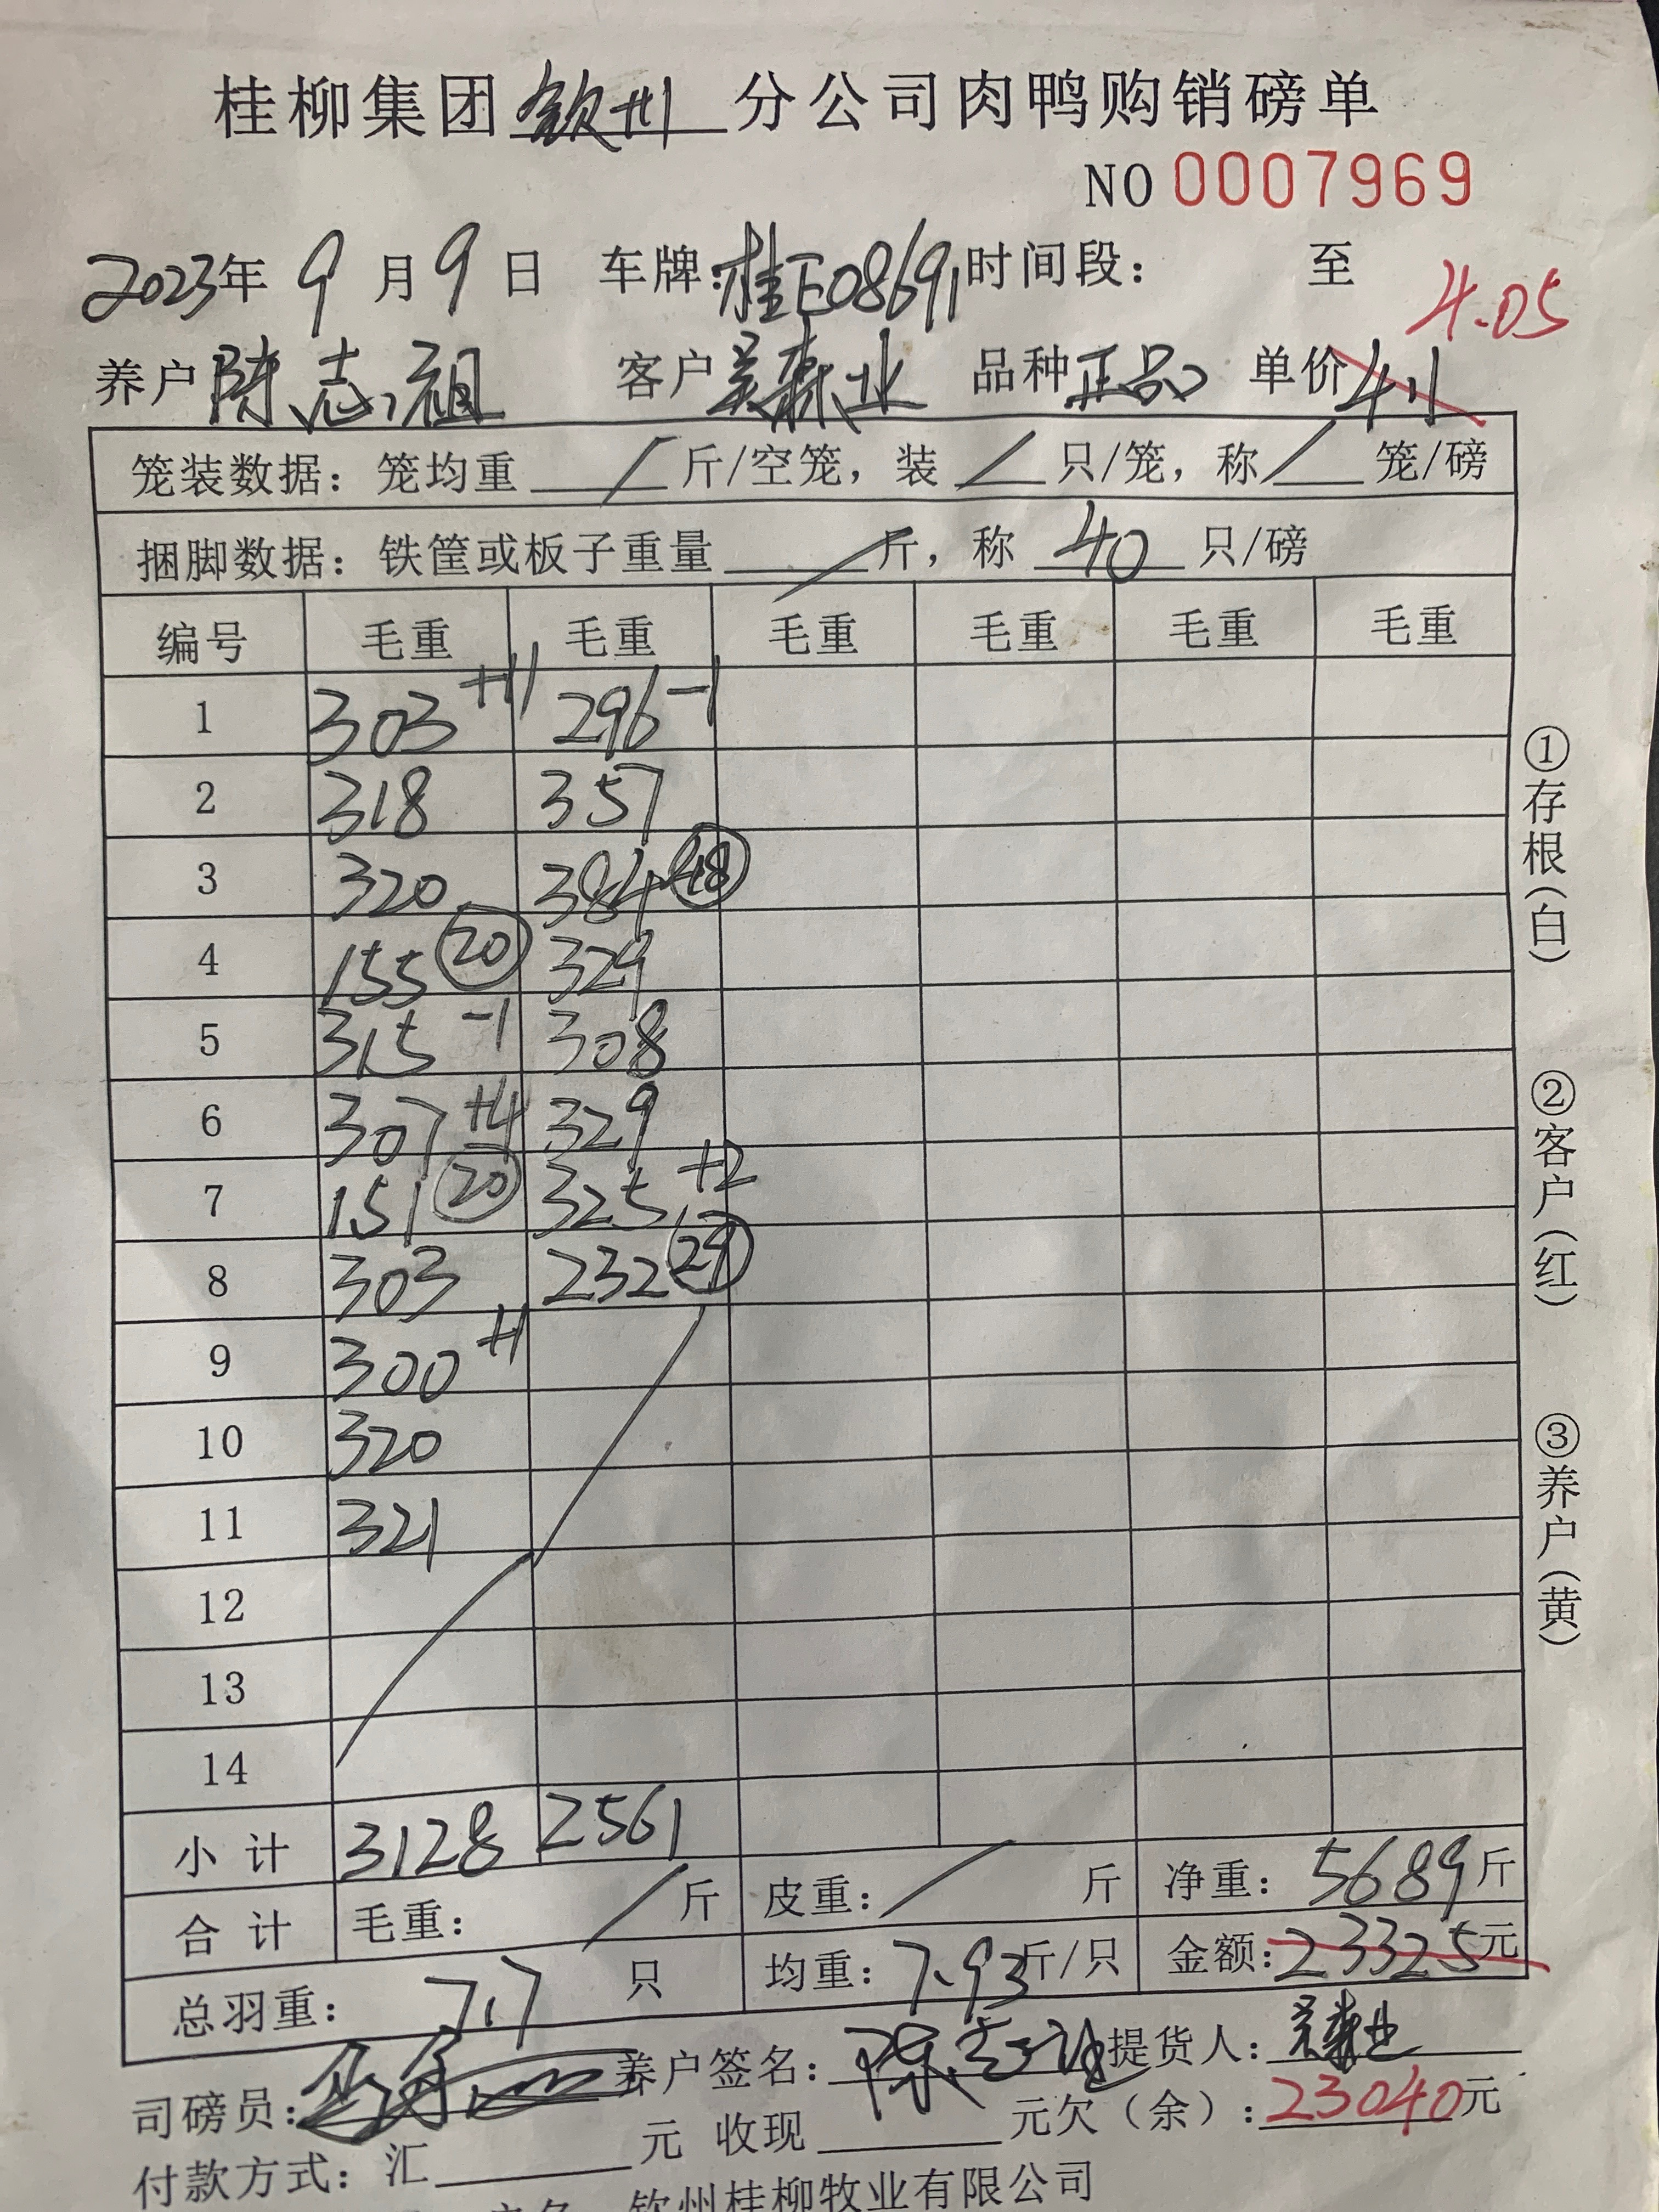 桂柳集团钦州分公司肉鸭购销磅单
NO 0007969
2023年 9月9日 车牌:桂E08691 时间段: 至
4.05
养户 陈志祖 客户 吴森业 品种 正品 单价 4.1
笼装数据:笼均重 / 斤/空笼,装 / 只/笼,称 / 笼/磅
捆脚数据:铁筐或板子重量 / 斤,称 40 只/磅
编号 毛重 毛重 毛重 毛重 毛重 毛重
1 303 +11 296 -1
2 318 357
3 320 384 48
4 155 20 329
5 315 -1 308
6 307 +4 329
7 151 20 325 +2
8 303 232 29
9 300 +1
10 320
11 321
12
13
14
小计 3128 2561
合计 毛重: / 斤 皮重: / 斤 净重: 5689斤
总羽重: 717 只 均重: 7.93斤/只 金额: 23325元
司磅员: 养户签名: 陈志祖 提货人: 吴森业
付款方式:汇 元 收现 元欠(余): 23040元
钦州桂柳牧业有限公司
①存根(白)
②客户(红)
③养户(黄)